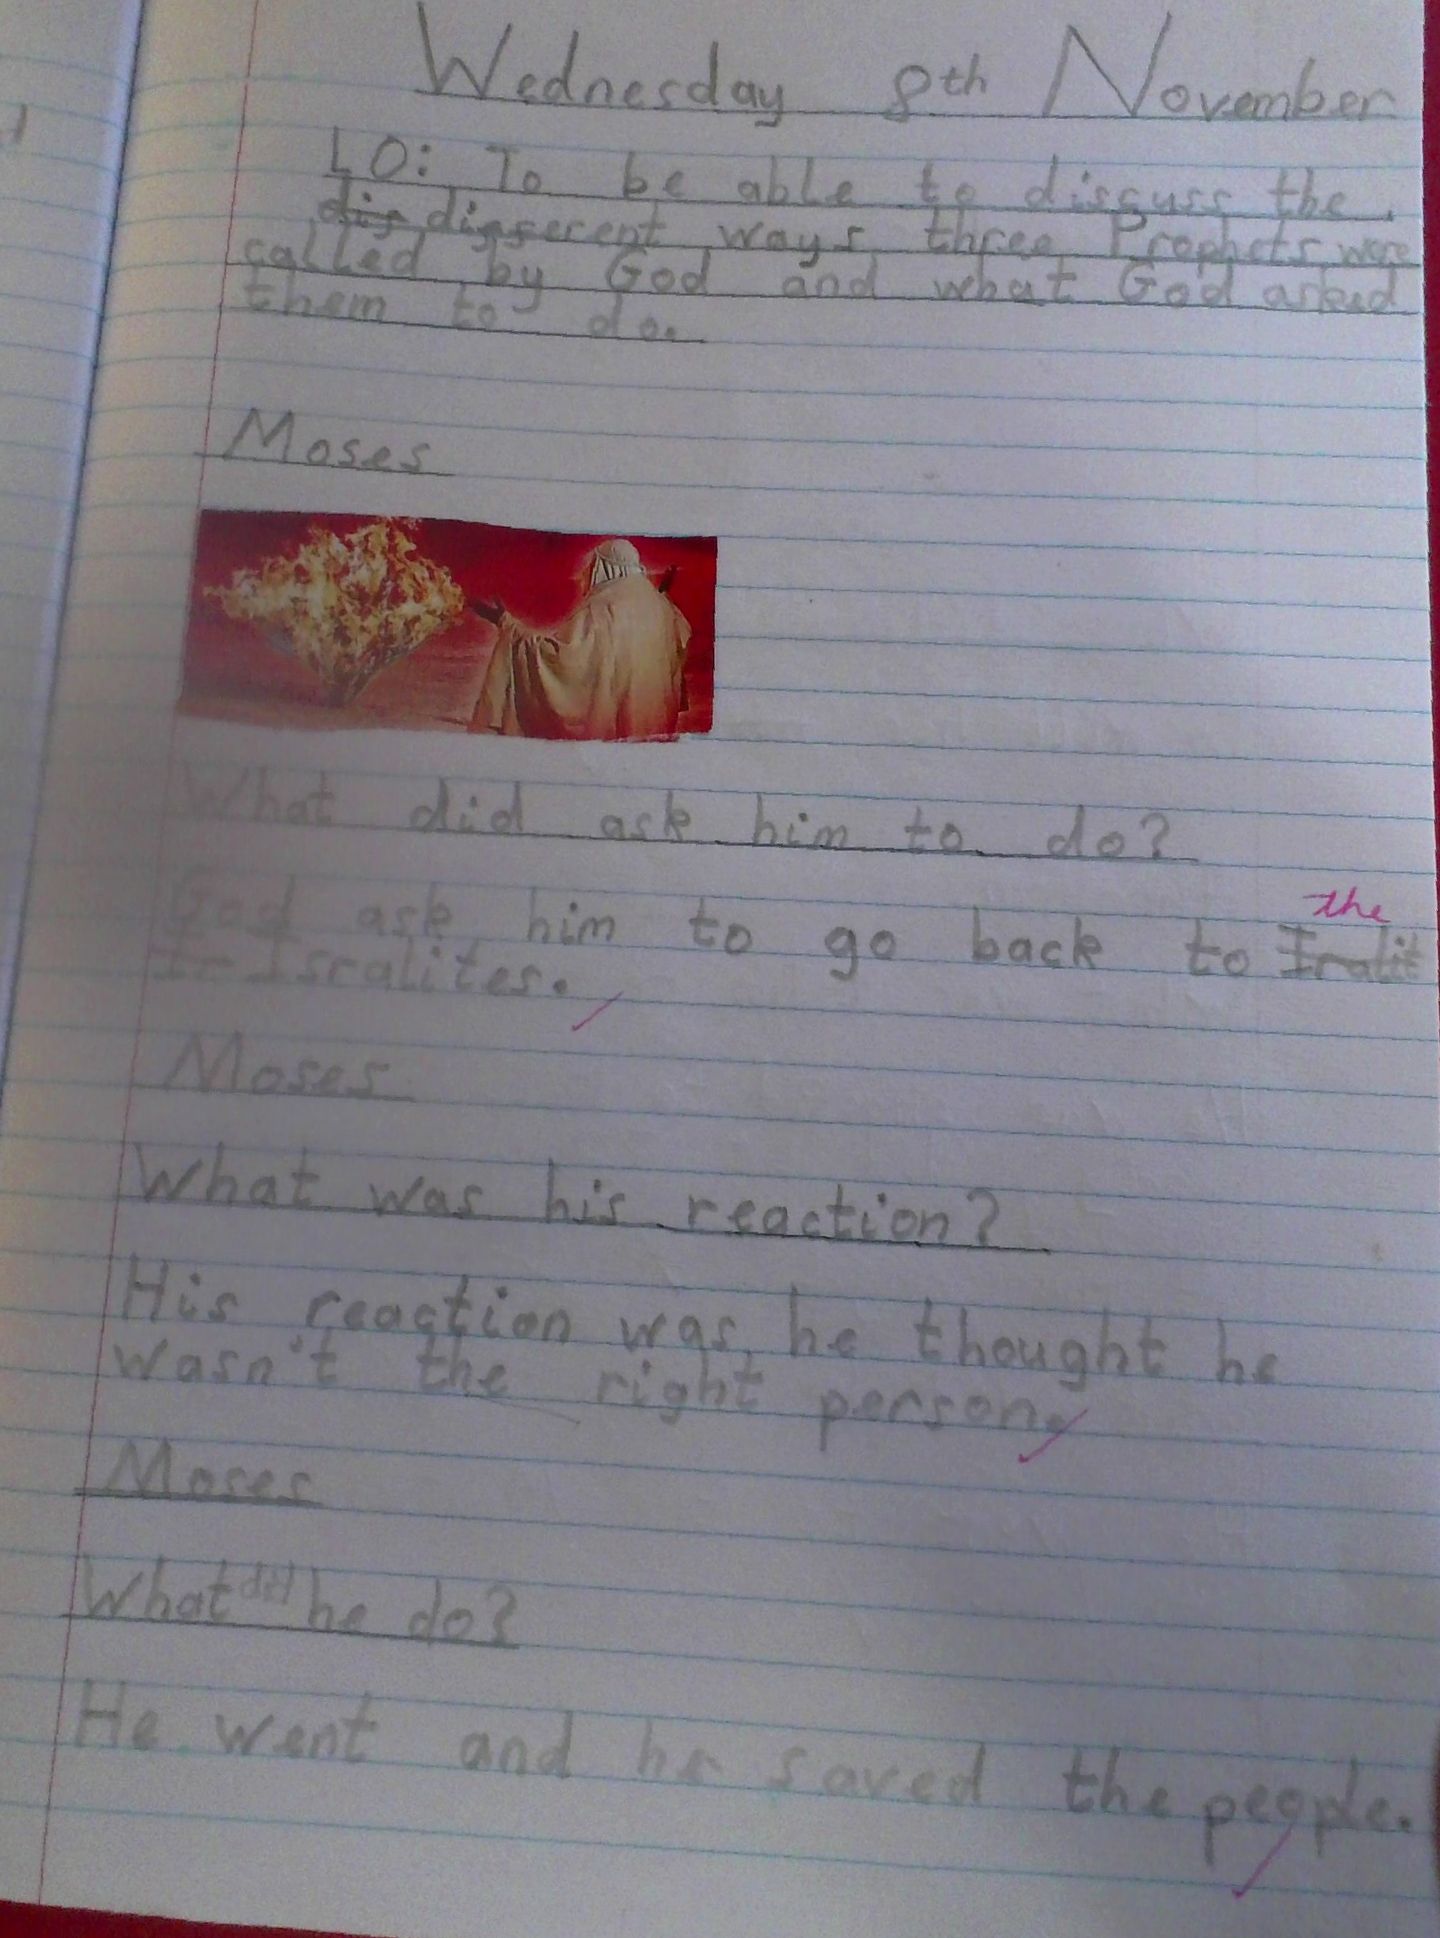 Wednesday 8th November
LO: To be able to discuss the
dif different ways three Prophets were
called by God and what God asked
them to do.
Moses
What did ask him to do?
the
God ask him to go back to Iralit
Isralites.
Moses
What was his reaction?
His reaction was he thought he
wasn't the right person.
Moses
What did he do?
He went and he saved the people.